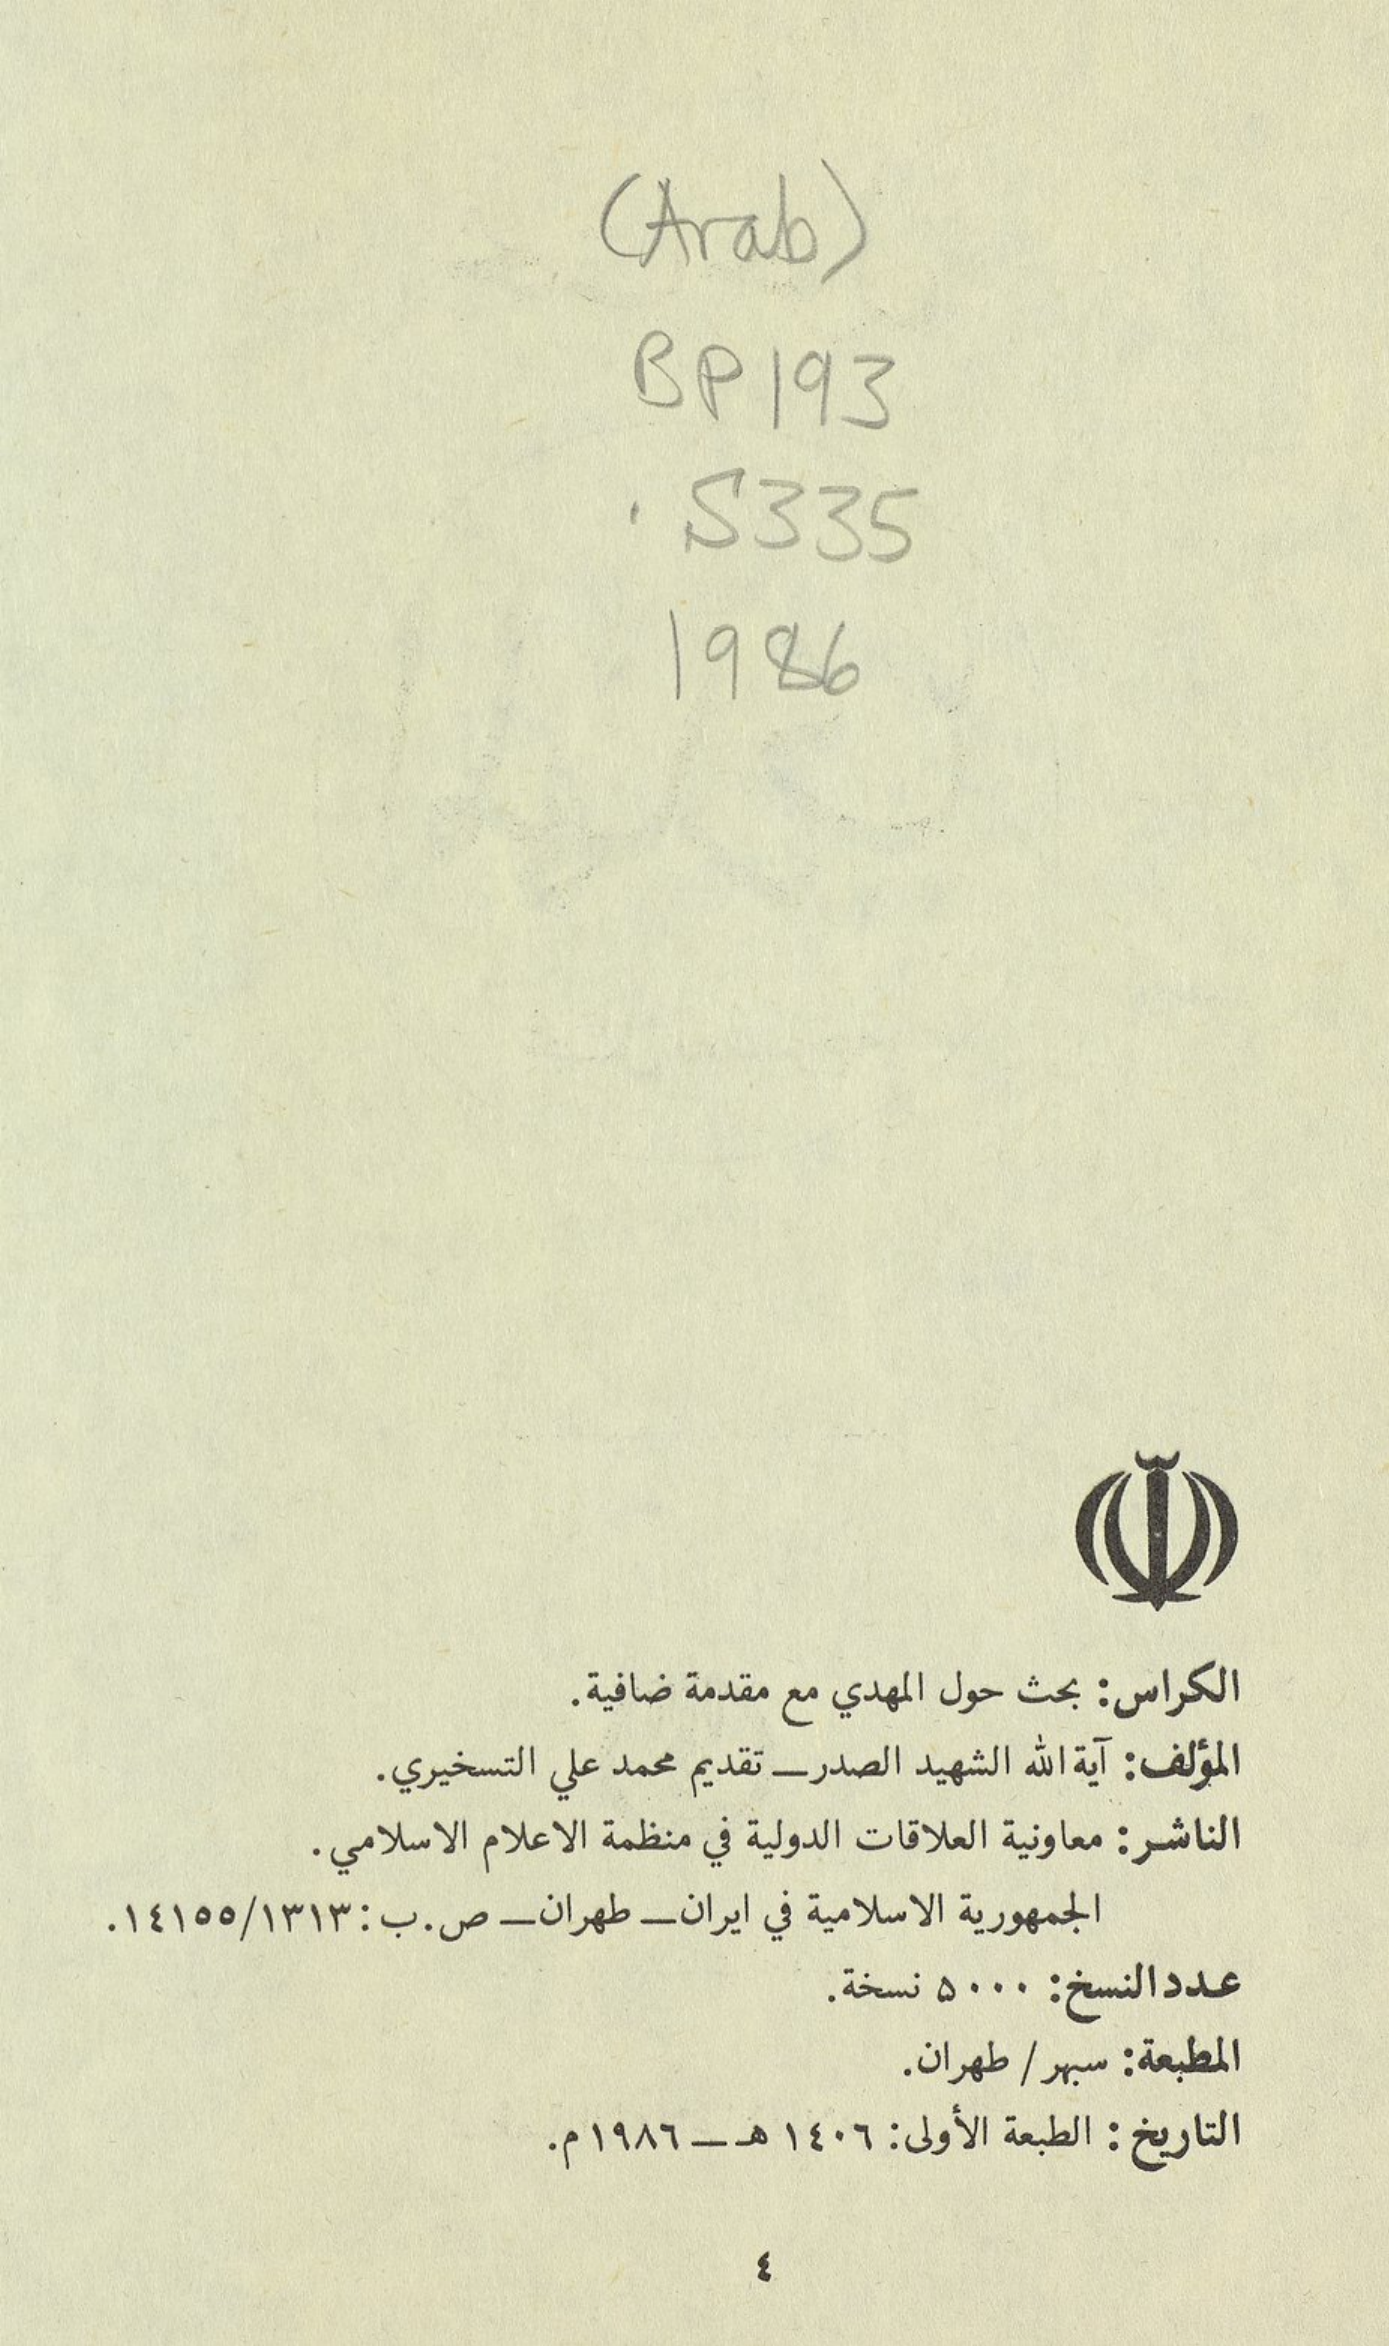 (Arab)
BP193
.S335
1986
الكراس: بحث حول المهدي مع مقدمة ضافية.
المؤلف: آية الله الشهيد الصدر ـ تقديم محمد علي التسخيري.
الناشر: معاونية العلاقات الدولية في منظمة الاعلام الاسلامي.
الجمهورية الاسلامية في ايران ـ طهران ـ ص.ب: ١٤١٥٥/١٣١٣.
عدد النسخ: ٥٠٠٠ نسخة.
المطبعة: سبهر / طهران.
التاريخ: الطبعة الأولى: ١٤٠٦ هـ ـ ١٩٨٦ م.
٤